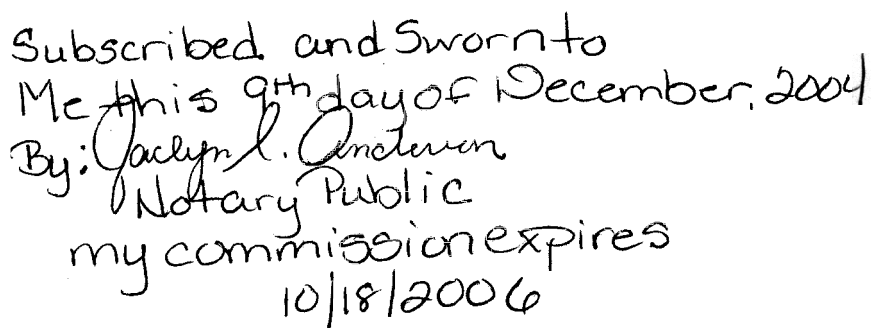 Subscribed and Sworn to
Me this 9th day of December, 2004
By: Jaclyn L. Anderson
Notary Public
my commission expires
10/18/2006